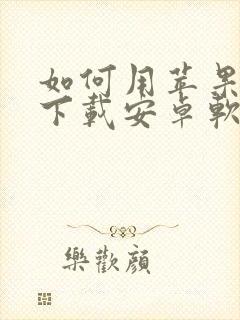 如何用苹果
下载安卓軟
樂歡顔